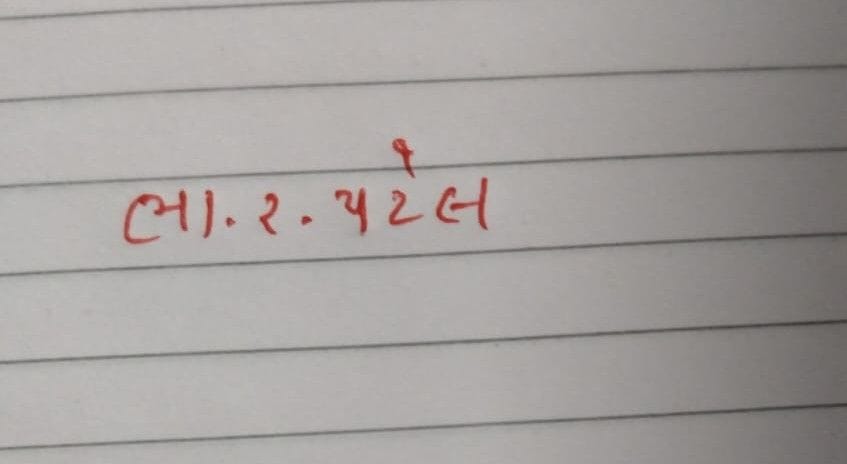 ભા. ર. પટેલ